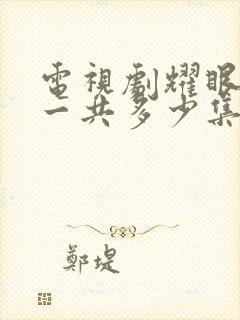 電視劇耀眼
一共多少集
鄭堤